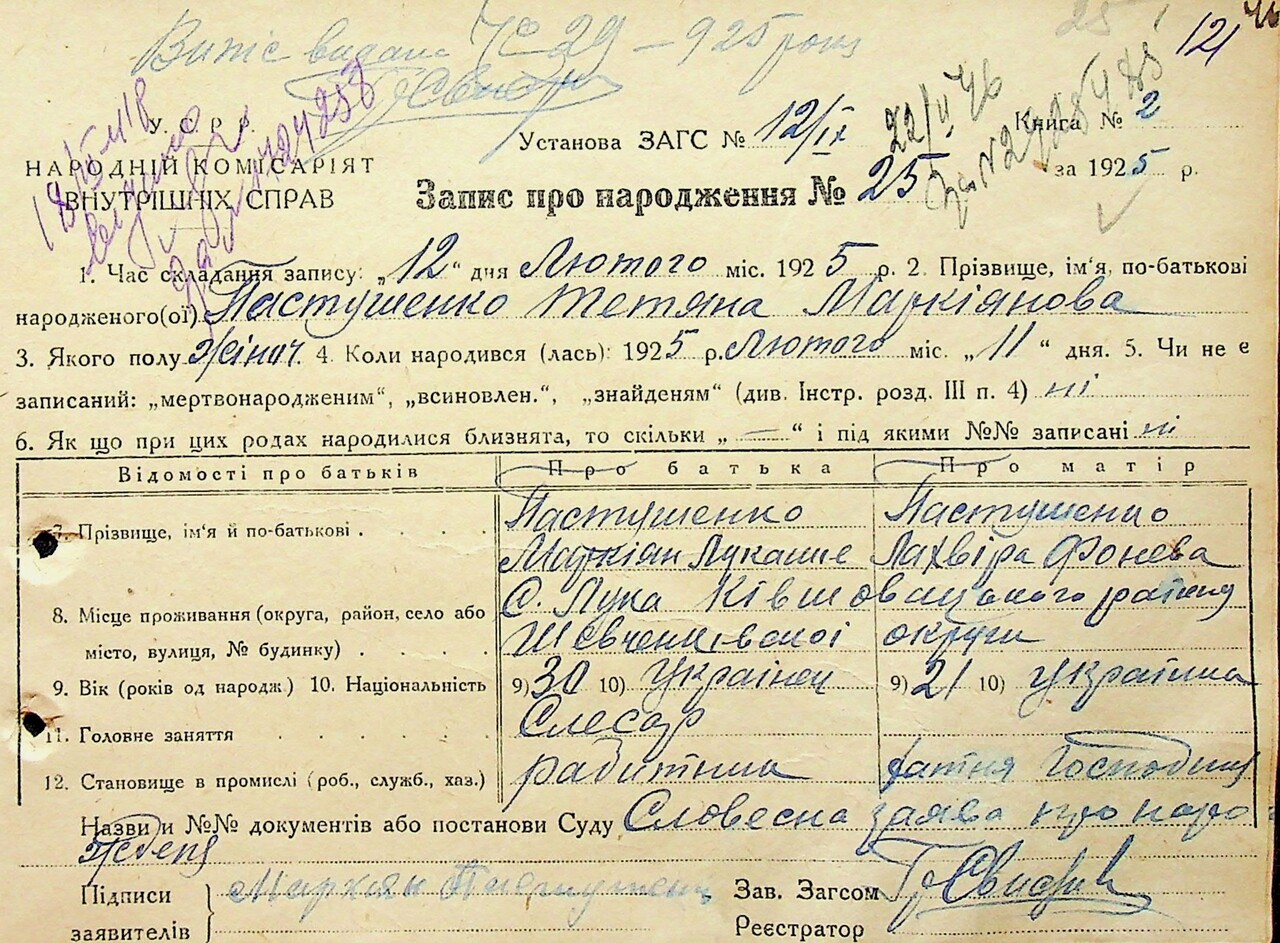 Випіс видано № 29 — 925 року
121
У. С. Р. Р.
НАРОДНІЙ КОМІСАРІЯТ
ВНУТРІШНІХ СПРАВ
18/IV
Установа ЗАГС № 12/IX
22/V 46
Книга № 2
за 1925 р.
Запис про народження № 25
1. Час складання запису: „12“ дня Лютого міс. 1925 р. 2. Прізвище, ім'я, по-батькові
народженого(ої) Пастушенко Тетяна Маркіянова
3. Якого полу жіноч. 4. Коли народився (лась): 1925 р. Лютого міс. „11“ дня. 5. Чи не є
записаний: „мертвонародженим“, „всиновлен.“, „знайденям“ (див. Інстр. розд. III п. 4) ні
6. Як що при цих родах народилися близнята, то скільки „—“ і під якими №№ записані ні
Відомості про батьків Про батька Про матір
7. Прізвище, ім'я й по-батькові Пастушенко Пастушенко
Маркіян Лукаше Лахвіра Фонева
8. Місце проживання (округа, район, село або С. Лука Ківшовацького району
місто, вулиця, № будинку) Шевченківської округи
9. Вік (років од народж.) 10. Національність 9) 30 10) Українец 9) 21 10) Українка
11. Головне заняття Слесар
12. Становище в промислі (роб., служб., хаз.) робитник хатня Господиня
Назви и №№ документів або постанови Суду Словесна заява про наро
жденя
Підписи Маркіян Пастушенко Зав. Загсом
заявителів Реєстратор